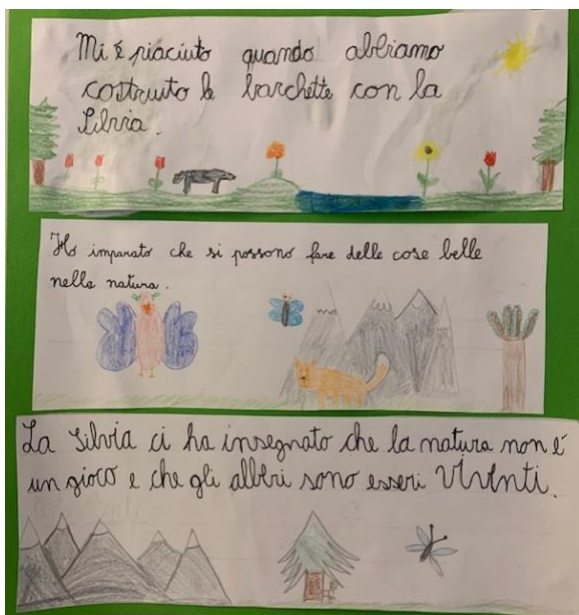 Mi è piaciuto quando abbiamo
costruito le barchette con la
Silvia.
Ho imparato che si possono fare delle cose belle
nella natura.
La Silvia ci ha insegnato che la natura non è
un gioco e che gli alberi sono esseri Viventi.